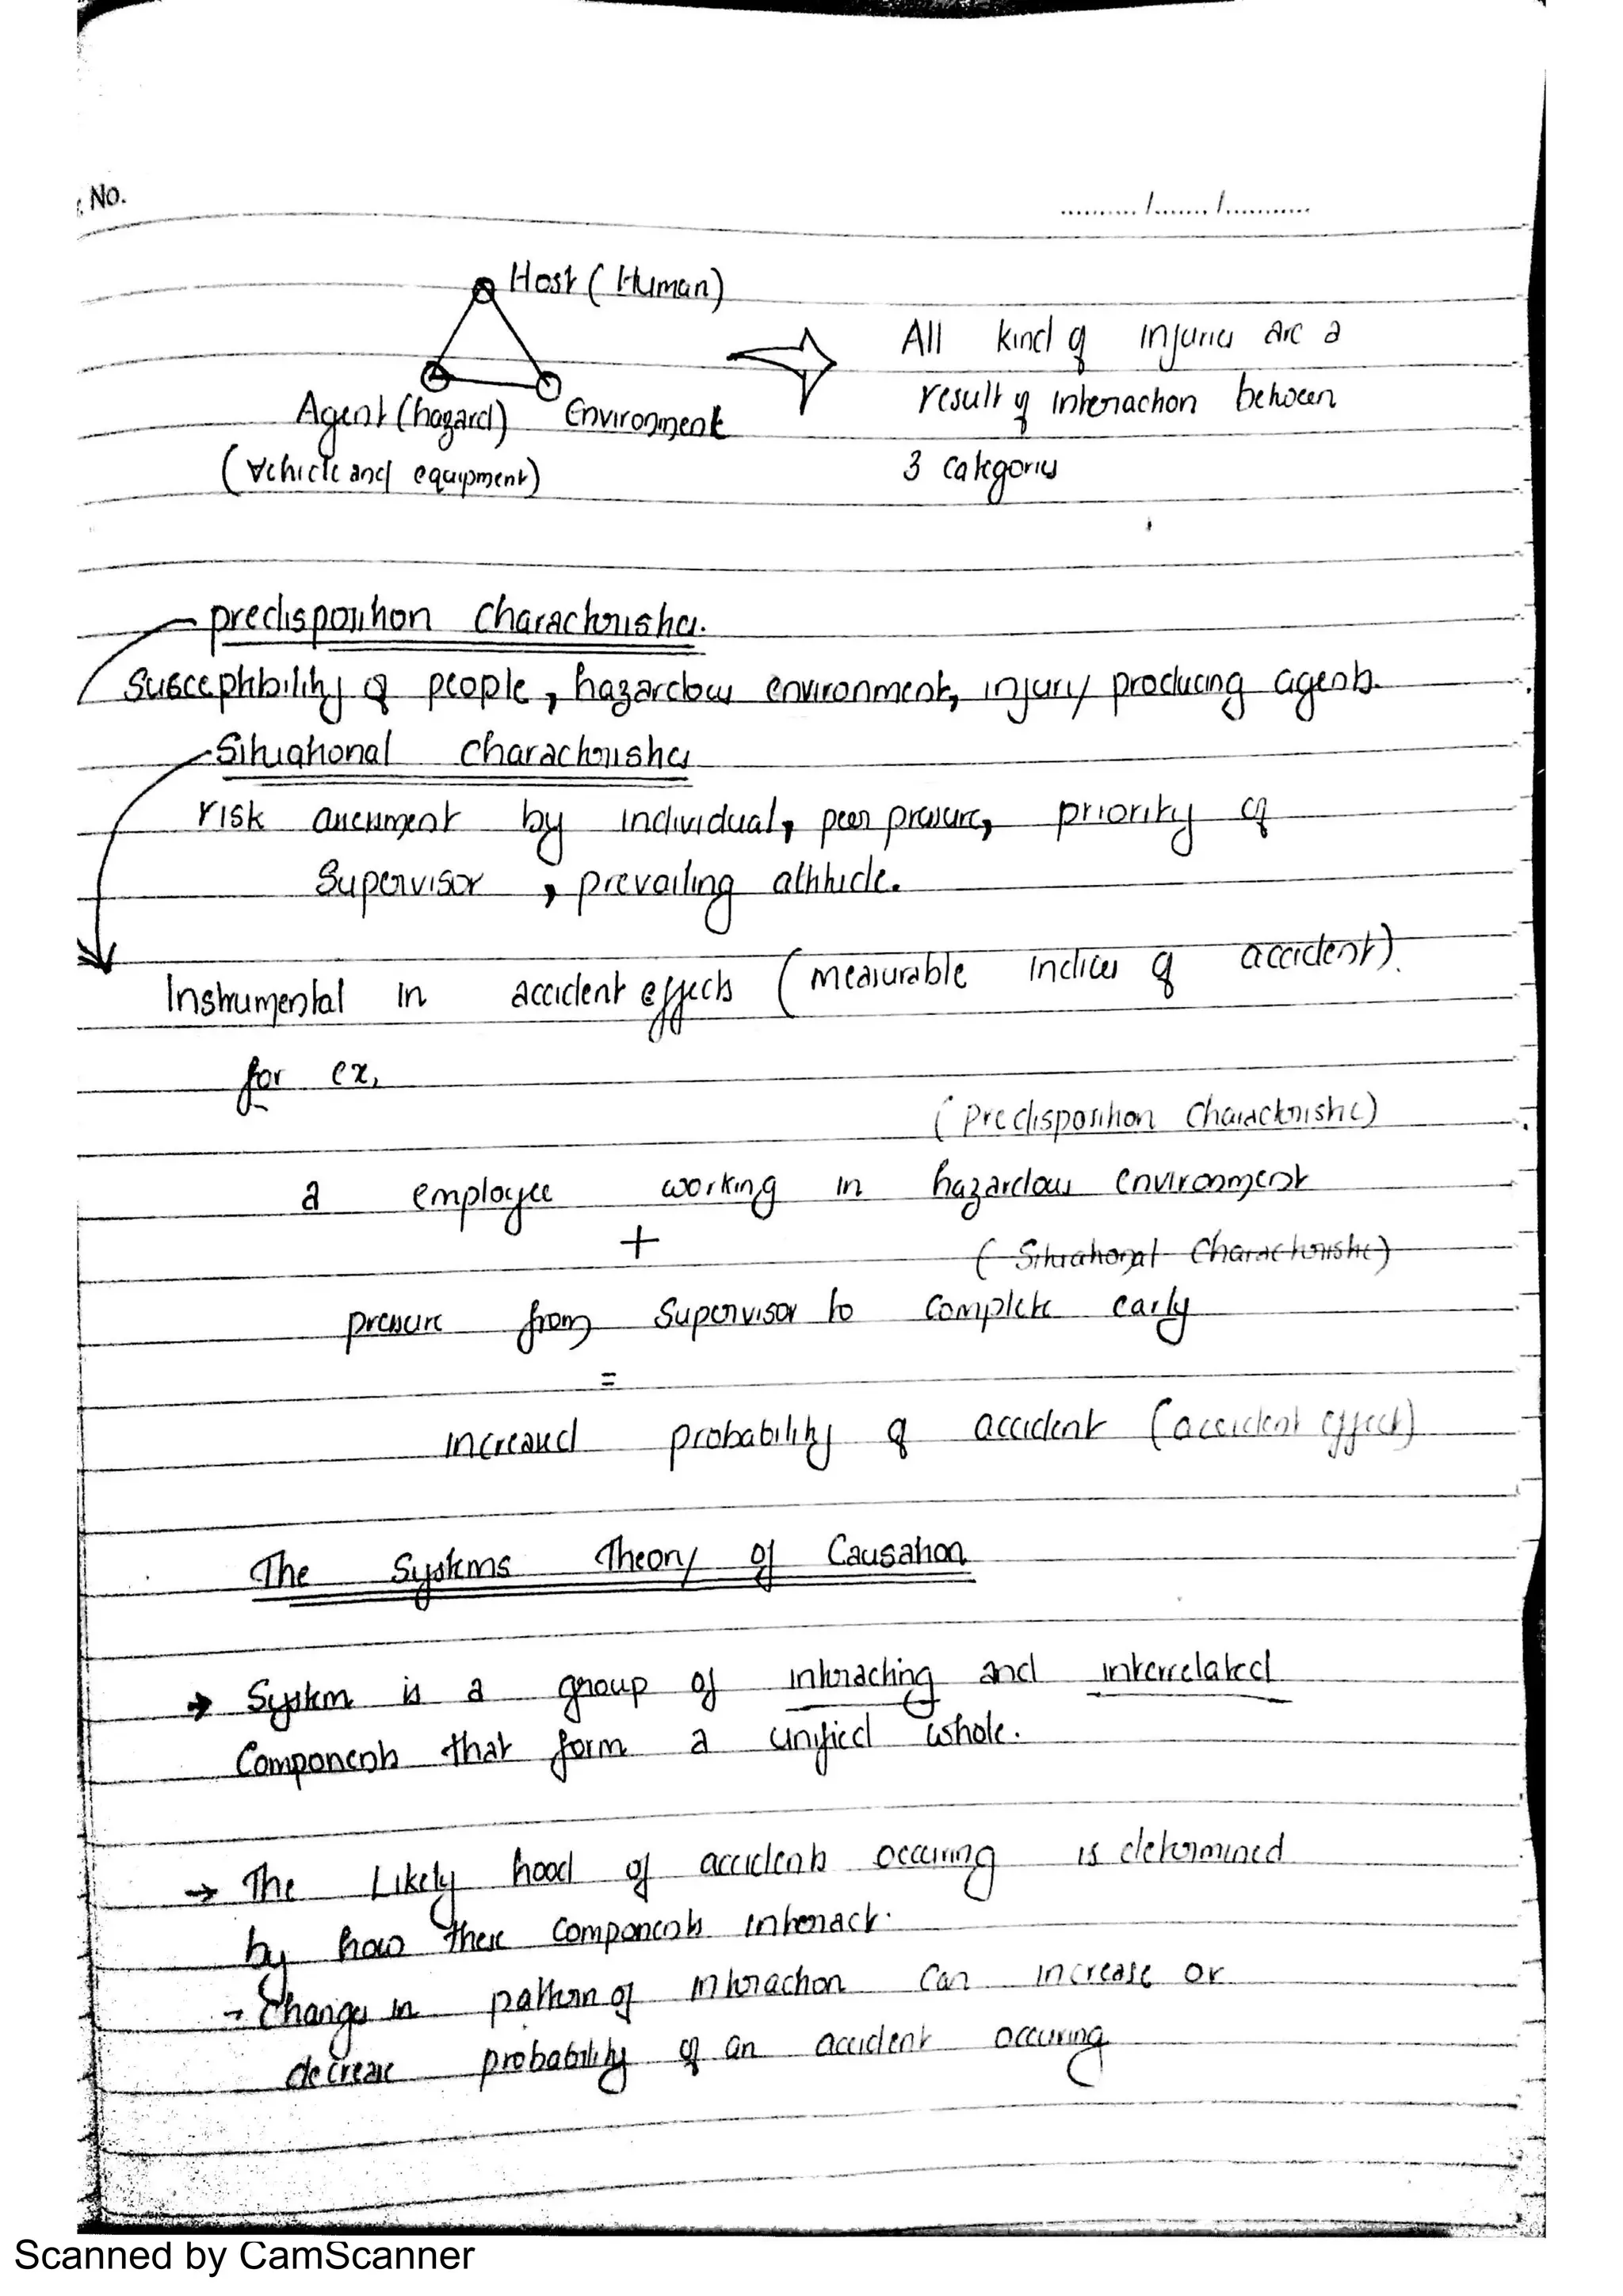 No.
........../......./...........
Host (Human)
Agent (hazard) Environment
(vehicle and equipment)
All kind of injuries are a
result of interaction between
3 categories
predisposition characteristics.
Susceptibility of people, hazardous environment, injury producing agents.
Situational characteristics
risk assessment by individual, peer pressure, priority of
Supervisor, prevailing attitude.
Instrumental in accident effects (measurable indices of accident).
for ex,
(Predisposition Characteristic)
a employee working in hazardous environment
+
(Situational Characteristic)
pressure from Supervisor to complete early
=
increased probability of accident (accident effect)
The Systems Theory of Causation
→ System is a group of interacting and interrelated
Components that form a unified whole.
→ The Likely hood of accidents occuring is determined
by how these components interact.
→ Changes in pattern of interaction can increase or
decrease probability of an accident occuring
Scanned by CamScanner